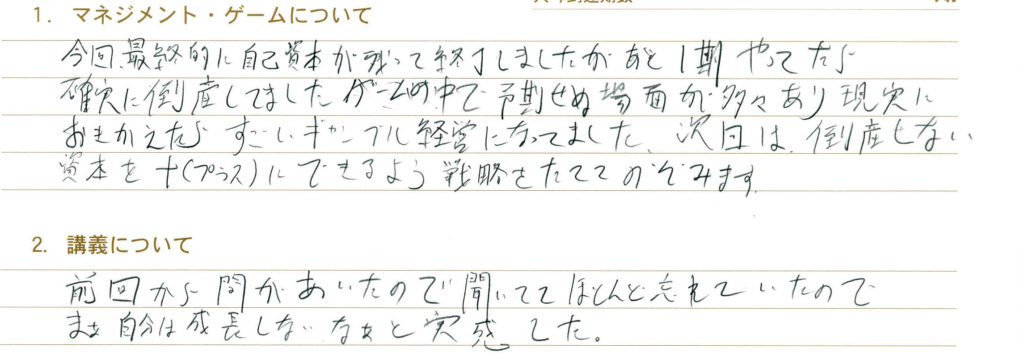 1. マネジメント・ゲームについて
今回、最終的に自己資本が残って終了しましたがあと1期やってたら
確実に倒産してました。ゲームの中で予期せぬ場面が多々あり現実に
おきかえたらすごいギャンブル経営になってました。次回は、倒産しない
資本を+(プラス)にできるよう戦略をたててのぞみます。
2. 講義について
前回から間があいたので聞いててほとんど忘れていたので
まぁ自分は成長しないなぁと実感した。